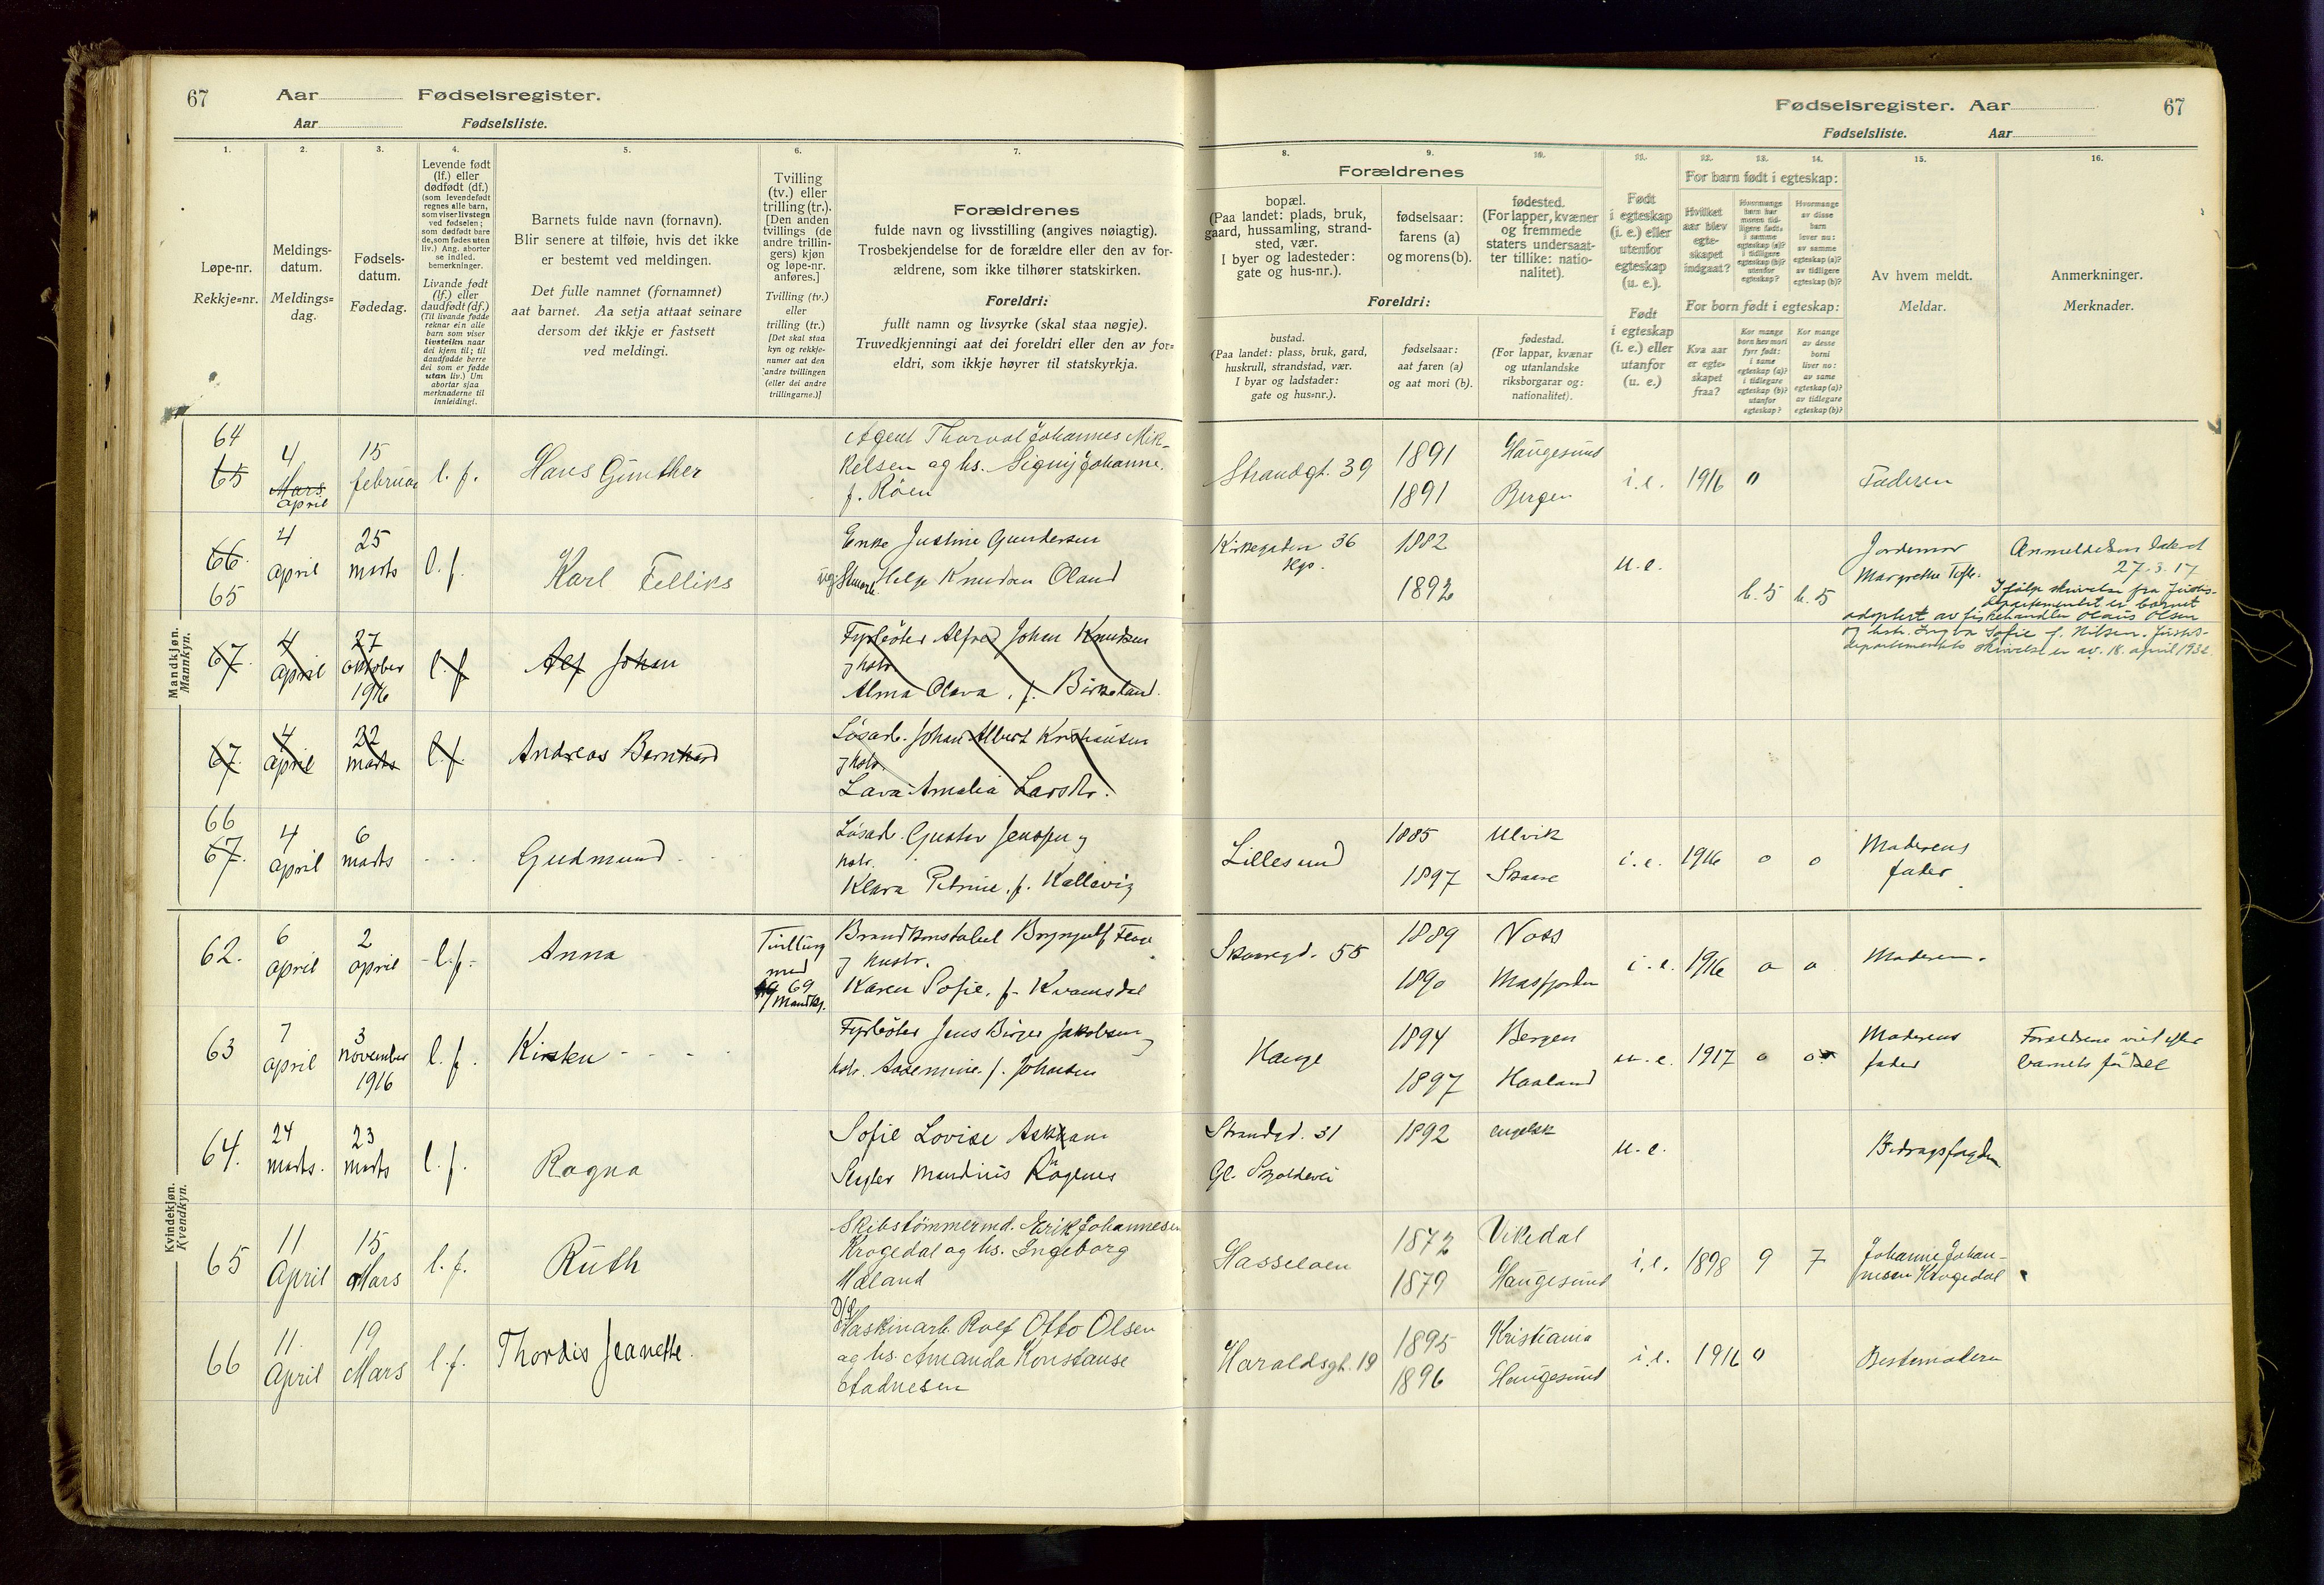 67 Aar Fødselsregister.
Aar Fødselsliste.
Fødselsregister. Aar 67
Fødselsliste. Aar
1.
Løpe-nr.
Rekkje=nr.
2.
Meldings-
datum.
Meldings=
dag.
3.
Fødsels-
datum.
Fødedag.
4.
Levende født
(lf.) eller
dødfødt (df.)
(som levendefødt
regnes alle barn,
som viser livstegn
ved fødselen;
som dødfødt bare
de, som fødes uten
liv.) Ang. aborter
se indled.
bemerkninger.
Livande født
(lf.) eller
daudfødt (df.)
(Til livande fødde
reknar ein alle
barn som viser
livsteikn naar
dei kjem til; til
daudfødde berre
dei som er fødde
utan liv.) Um
abortar sjaa
merknaderne til
innleidingi.
5.
Barnets fulde navn (fornavn).
Blir senere at tilføie, hvis det ikke
er bestemt ved meldingen.
Det fulle namnet (fornamnet)
aat barnet. Aa setja attaat seinare
dersom det ikkje er fastsett
ved meldingi.
6.
Tvilling
(tv.) eller
trilling (tr.).
[Den anden
tvillings (de
andre trillin-
gers) kjøn
og løpe-nr.
anføres.]
Tvilling (tv.)
eller
trilling (tr.)
[Det skal staa
kyn og rekkje-
numer aat den
andre tvillingen
(eller dei andre
trillingarne.)]
7.
Forældrenes
fulde navn og livsstilling (angives nøiagtig).
Trosbekjendelse for de forældre eller den av for-
ældrene, som ikke tilhører statskirken.
Foreldri:
fullt namn og livsyrke (skal staa nøgje).
Truvedkjenningi aat dei foreldri eller den av for=
eldri, som ikkje høyrer til statskyrkja.
Forældrenes
8.
bopæl.
(Paa landet: plads, bruk,
gaard, hussamling, strand-
sted, vær.
I byer og ladesteder:
gate og hus-nr.).
9.
fødselsaar:
farens (a)
og morens (b).
10.
fødested.
(For lapper, kvæner
og fremmede
staters undersaat-
ter tillike: natio-
nalitet).
Foreldri:
bustad.
(Paa landet: plass, bruk, gard,
huskrull, strandstad, vær.
I byar og ladstader:
gate og hus=nr.).
fødselsaar:
aat faren (a)
og aat mori (b).
fødestad.
(For lappar, kvænar
og utanlandske
riksborgarar og:
nationalitet).
11.
Født
i egteskap
(i. e.) eller
utenfor
egteskap
(u. e.).
Født
i egteskap
(i. e.) eller
utanfor
(u. e.)
12.
13.
14.
For barn født i egteskap:
Hvilket
aar blev
egte-
skapet
indgaat?
Hvormange
barn har
moren tid-
ligere født:
i samme
egteskap (a)?
i tidligere
egteskap (b)?
utenfor
egteskap?
Hvormange
av disse
barn
lever nu:
av samme
egteskap (a)?
av tidligere
egteskap (b)?
For born født i egteskap:
Kva aar
er egte-
skapet
fraa?
Kor mange
born hev mori
fyrr født:
i same
egteskap (a)?
i tidlegare
egteskap (b)?
utanfor
egteskap?
Kor mange
av desse
borni
liver no:
av same
egteskap (a)?
av tidlegare
egteskap (b)?
15.
Av hvem meldt.
Meldar.
16.
Anmerkninger.
Merknader.
Mandkjøn.
Mannkyn.
64
65
4
Mars
april
15
februar
l. f.
Hans Günther
Agent Thorval Johannes Mik-
kelsen og hs. Signy Johanne
f. Røen
Strandgt. 39
1891
1891
Haugesund
Bergen
i. e.
1916
0
Faderen
66
65
4
april
25
marts
l. f.
Karl Felliks
Enke Justine Gundersen
Helge Knudsen Øland
Kirkegaten 36
1882
1892
u. e.
b. 5
b. 5
Jordemor
Margrethe
Anmeldelsen datert
27.3.17
Ifølge skrivelse fra Justis-
departementet er barnet
adoptert av fiskehandler Olaus Olsen
og hstr. Ingba Sofie f. Nilsen. Justis-
departementets skrivelse er av. 18. april 1932
67.
4
april
27
oktober
1916
l. f
Alf Johan
Fyrbøter Alfred Johan Knudsen
og hstr.
Alma Olava. f. Birkeland.
67.
4
april
22
marts
l. f.
Andreas Bernhard
Løsarb. Johan Albert Kristiansen
og hstr.
Lava Amalia Larsdtr.
66
67.
4
april
6
marts
Gudmund
Løsarb. Gustav Jensen og
hstr.
Klara Petrine. f. Kallevig
Lillesund
1885
1897
Ulvik
Skaare
i. e.
1916
0
0
Moderens
fader.
Kvindekjøn.
Kvendkyn.
62.
6
april
2
april
l. f.
Anna
Tvilling
med
69
Mandkj.
Brandkonstabel Brynjulf
og hustr.
Karen Sofie. f. Kvamsdal
Skaaregd. 55
1889
1890
Voss
Masfjorden
i. e.
1916
0
0
Moderen.
63
7
april
3
november
1916
l. f.
Kirsten
Fyrbøter Jens Birger Jakobsen og
hstr. Aasemine. f. Johansen
Hauge
1894
1897
Bergen
Haaland
u. e.
1917
0
0
Moderens
fader
Forældrene viet efter
barnets fødsel
64.
24
marts.
23
marts
l. f.
Ragna
Sofie Lovise Askam
Mandius Røgenes
Strandgd. 31
Gl. Skjoldevei
1892
engelsk
u. e.
Bidragsfogden
65
11
April
15
Mars
l. f.
Ruth
Skibstømmermd. Erik Johannesen
Krogedal og hs. Ingeborg
Haland
Hasseløen
1872
1879
Vikedal
Haugesund
i. e.
1898
9
7
Johanne Johan-
nesen Krogedal
66
11.
April
19
Mars
l. f.
Thordis Jeanette.
Maskinarb. Rolf Otto Olsen
og hs. Amanda Konstanse
Stadnesen
Haraldsgt. 19
1895
1896
Kristiania
Haugesund
i. e.
1916
0
Bestemoderen